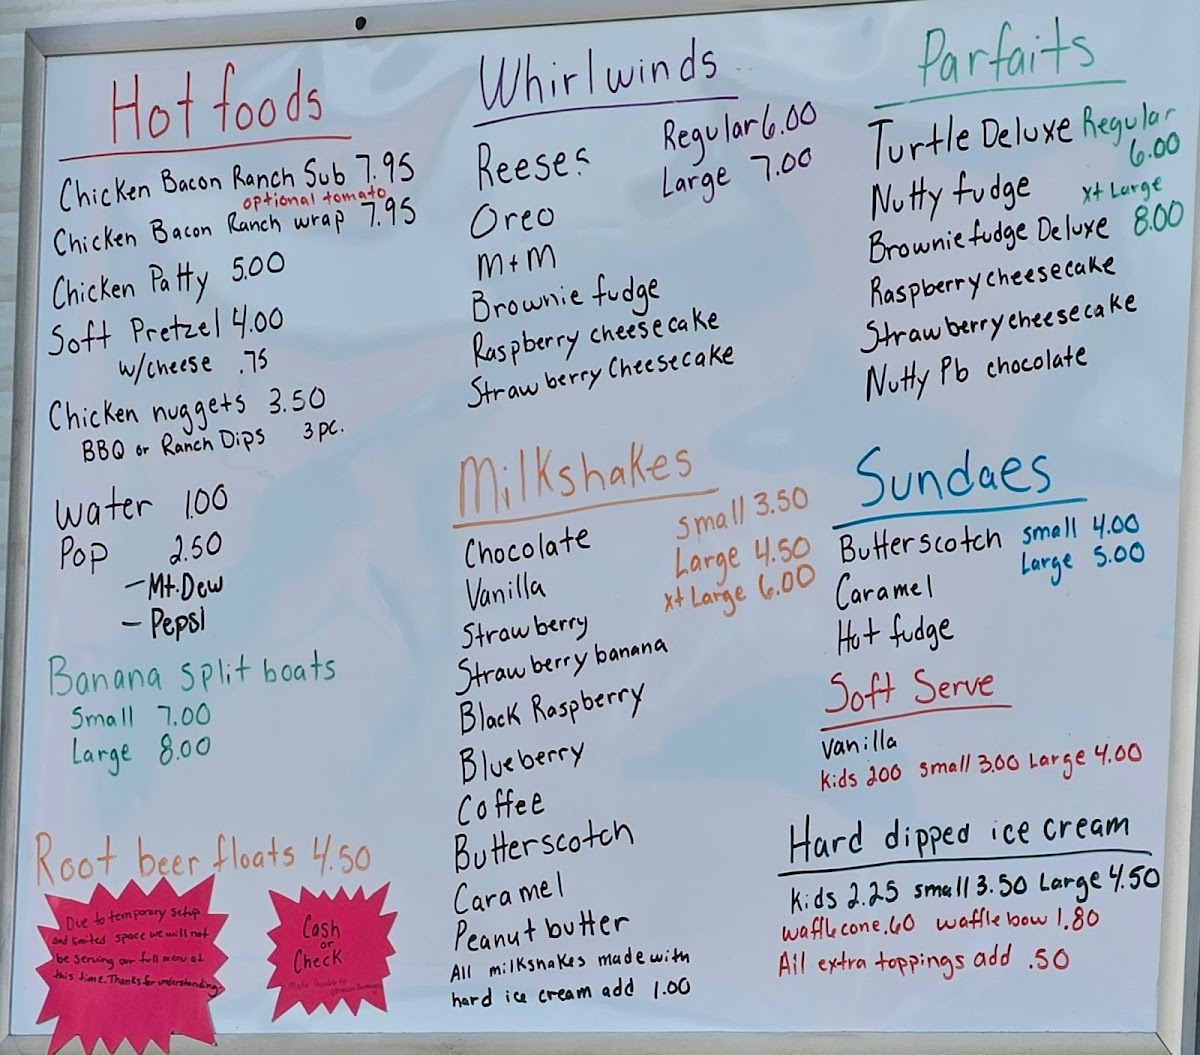 Hot foods
Chicken Bacon Ranch Sub 7.95
optional tomato
Chicken Bacon Ranch wrap 7.95
Chicken Patty 5.00
Soft Pretzel 4.00
w/cheese .75
Chicken nuggets 3.50
BBQ or Ranch Dips 3 pc.
water 1.00
Pop 2.50
- Mt. Dew
- Pepsi
Banana split boats
Small 7.00
Large 8.00
Root beer floats 4.50
Due to temporary setup
and limited space we will not
be serving our full menu at
this time. Thanks for understanding
Cash
or
Check
Make Payable to
Whirlwinds
Regular 6.00
Large 7.00
Reeses
Oreo
M+M
Brownie fudge
Raspberry cheesecake
Strawberry Cheesecake
Milkshakes
small 3.50
Large 4.50
xt Large 6.00
Chocolate
Vanilla
Strawberry
Strawberry banana
Black Raspberry
Blueberry
Coffee
Butterscotch
Caramel
Peanut butter
All milkshakes made with
hard ice cream add 1.00
Parfaits
Turtle Deluxe Regular
6.00
Nutty fudge xt Large
Brownie fudge Deluxe 8.00
Raspberry cheesecake
Strawberry cheesecake
Nutty Pb chocolate
Sundaes
Butterscotch small 4.00
Large 5.00
Caramel
Hot fudge
Soft Serve
vanilla
kids 200 small 3.00 Large 4.00
Hard dipped ice cream
kids 2.25 small 3.50 Large 4.50
waffle cone .60 waffle bow 1.80
All extra toppings add .50